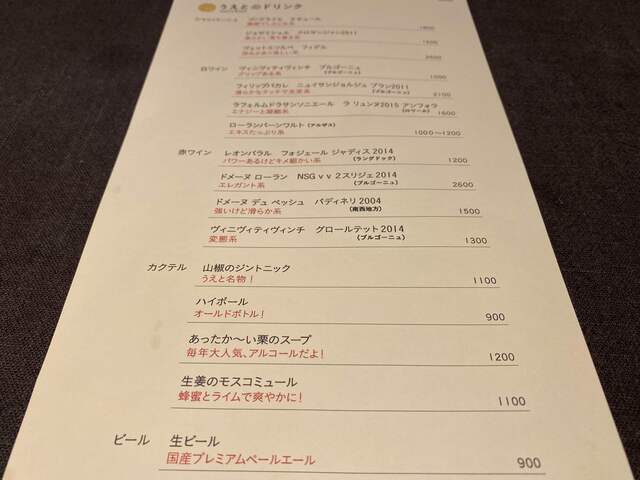 うえとのドリンク
ジョゼミシェル クロサンジャン2011
1500
ヴェットエソルベ フィデル
2500
白ワイン ヴィニヴィティヴィンチ ブルゴーニュ
グリップある系 (ブルゴーニュ) 1000
フィリップパカレ ニュイサンジョルジュ ブラン2011
滑らかなタッチで充実系 (ブルゴーニュ) 2100
ラフェルムドラサンソニエール ラ リュンヌ2015 アンフォラ
エナジーと凝縮系 (ロワール) 1600
ローランバーンワルト (アルザス)
エキスたっぷり系 1000〜1200
赤ワイン レオンバラル フォジェール ジャディス 2014
パワーあるけどキメ細かい系 (ラングドック) 1200
ドメーヌ ローラン NSG v v 2スリジェ2014
エレガント系 (ブルゴーニュ) 2600
ドメーヌ デュ ペッシュ バディネリ 2004
強いけど滑らか系 (南西地方) 1500
ヴィニヴィティヴィンチ グロールテット2014
変態系 (ブルゴーニュ) 1300
カクテル 山椒のジントニック
うえと名物! 1100
ハイボール
オールドボトル! 900
あったか〜い栗のスープ
毎年大人気、アルコールだよ! 1200
生姜のモスコミュール
蜂蜜とライムで爽やかに! 1100
ビール 生ビール
国産プレミアムペールエール 900